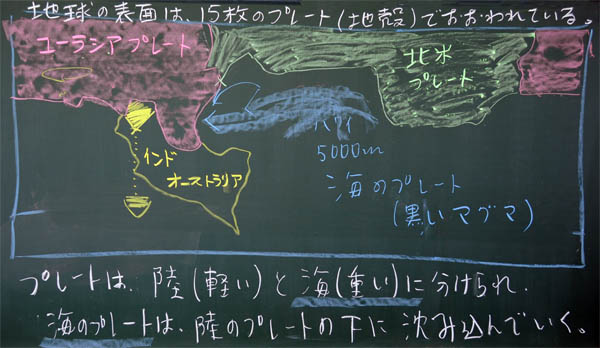 地球の表面は、15枚のプレート(地殻)でおおわれている。
ユーラシアプレート
北米
プレート
ハワイ
5000m
インド
オーストラリア
海のプレート
(黒いマグマ)
プレートは、陸(軽い)と海(重い)に分けられ、
海のプレートは、陸のプレートの下に沈み込んでいく。